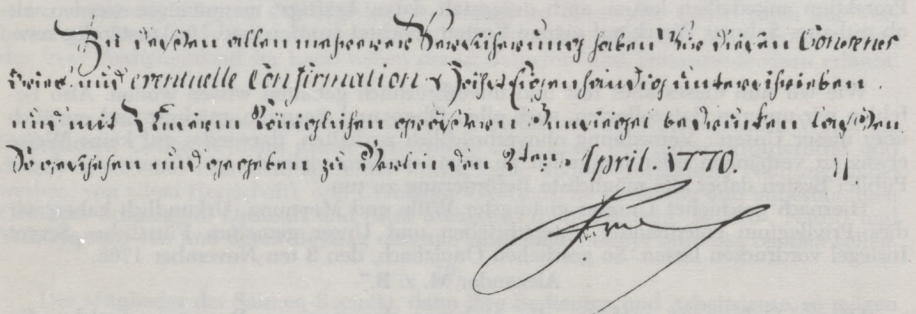 Zu dessen allen mehrerer Versicherung haben Wir diesen Consens
brief und eventuelle Confirmation Höchst Eigenhändig unterschrieben
und mit Unserm Königlichen größern Insiegel bedrucken laßen.
So geschehen und gegeben zu Berlin den 2ten April. 1770.